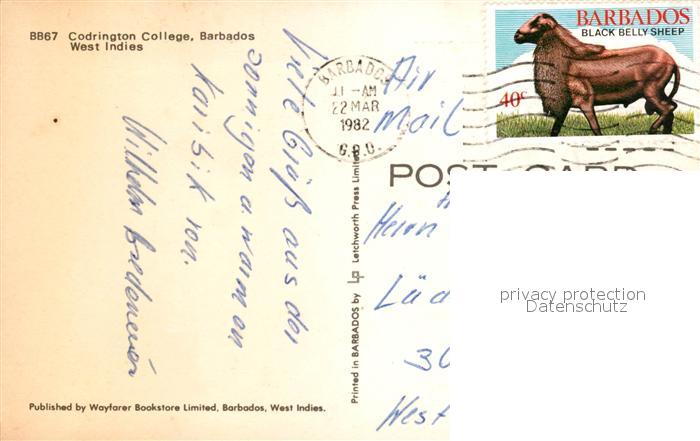 BB67 Codrington College, Barbados
West Indies
Viele Grüß aus der
sonnigen u. warmen
Karibik von.
Wilhelm
Published by Wayfarer Bookstore Limited, Barbados, West Indies.
Printed in BARBADOS by LP Letchworth Press Limited
BARBADOS
11 -AM
22 MAR
1982
G.P.O.
BARBADOS
BLACK BELLY SHEEP
40c
Air
Mail
POST CARD
Herrn
Lüd
30
West
privacy protection
Datenschutz